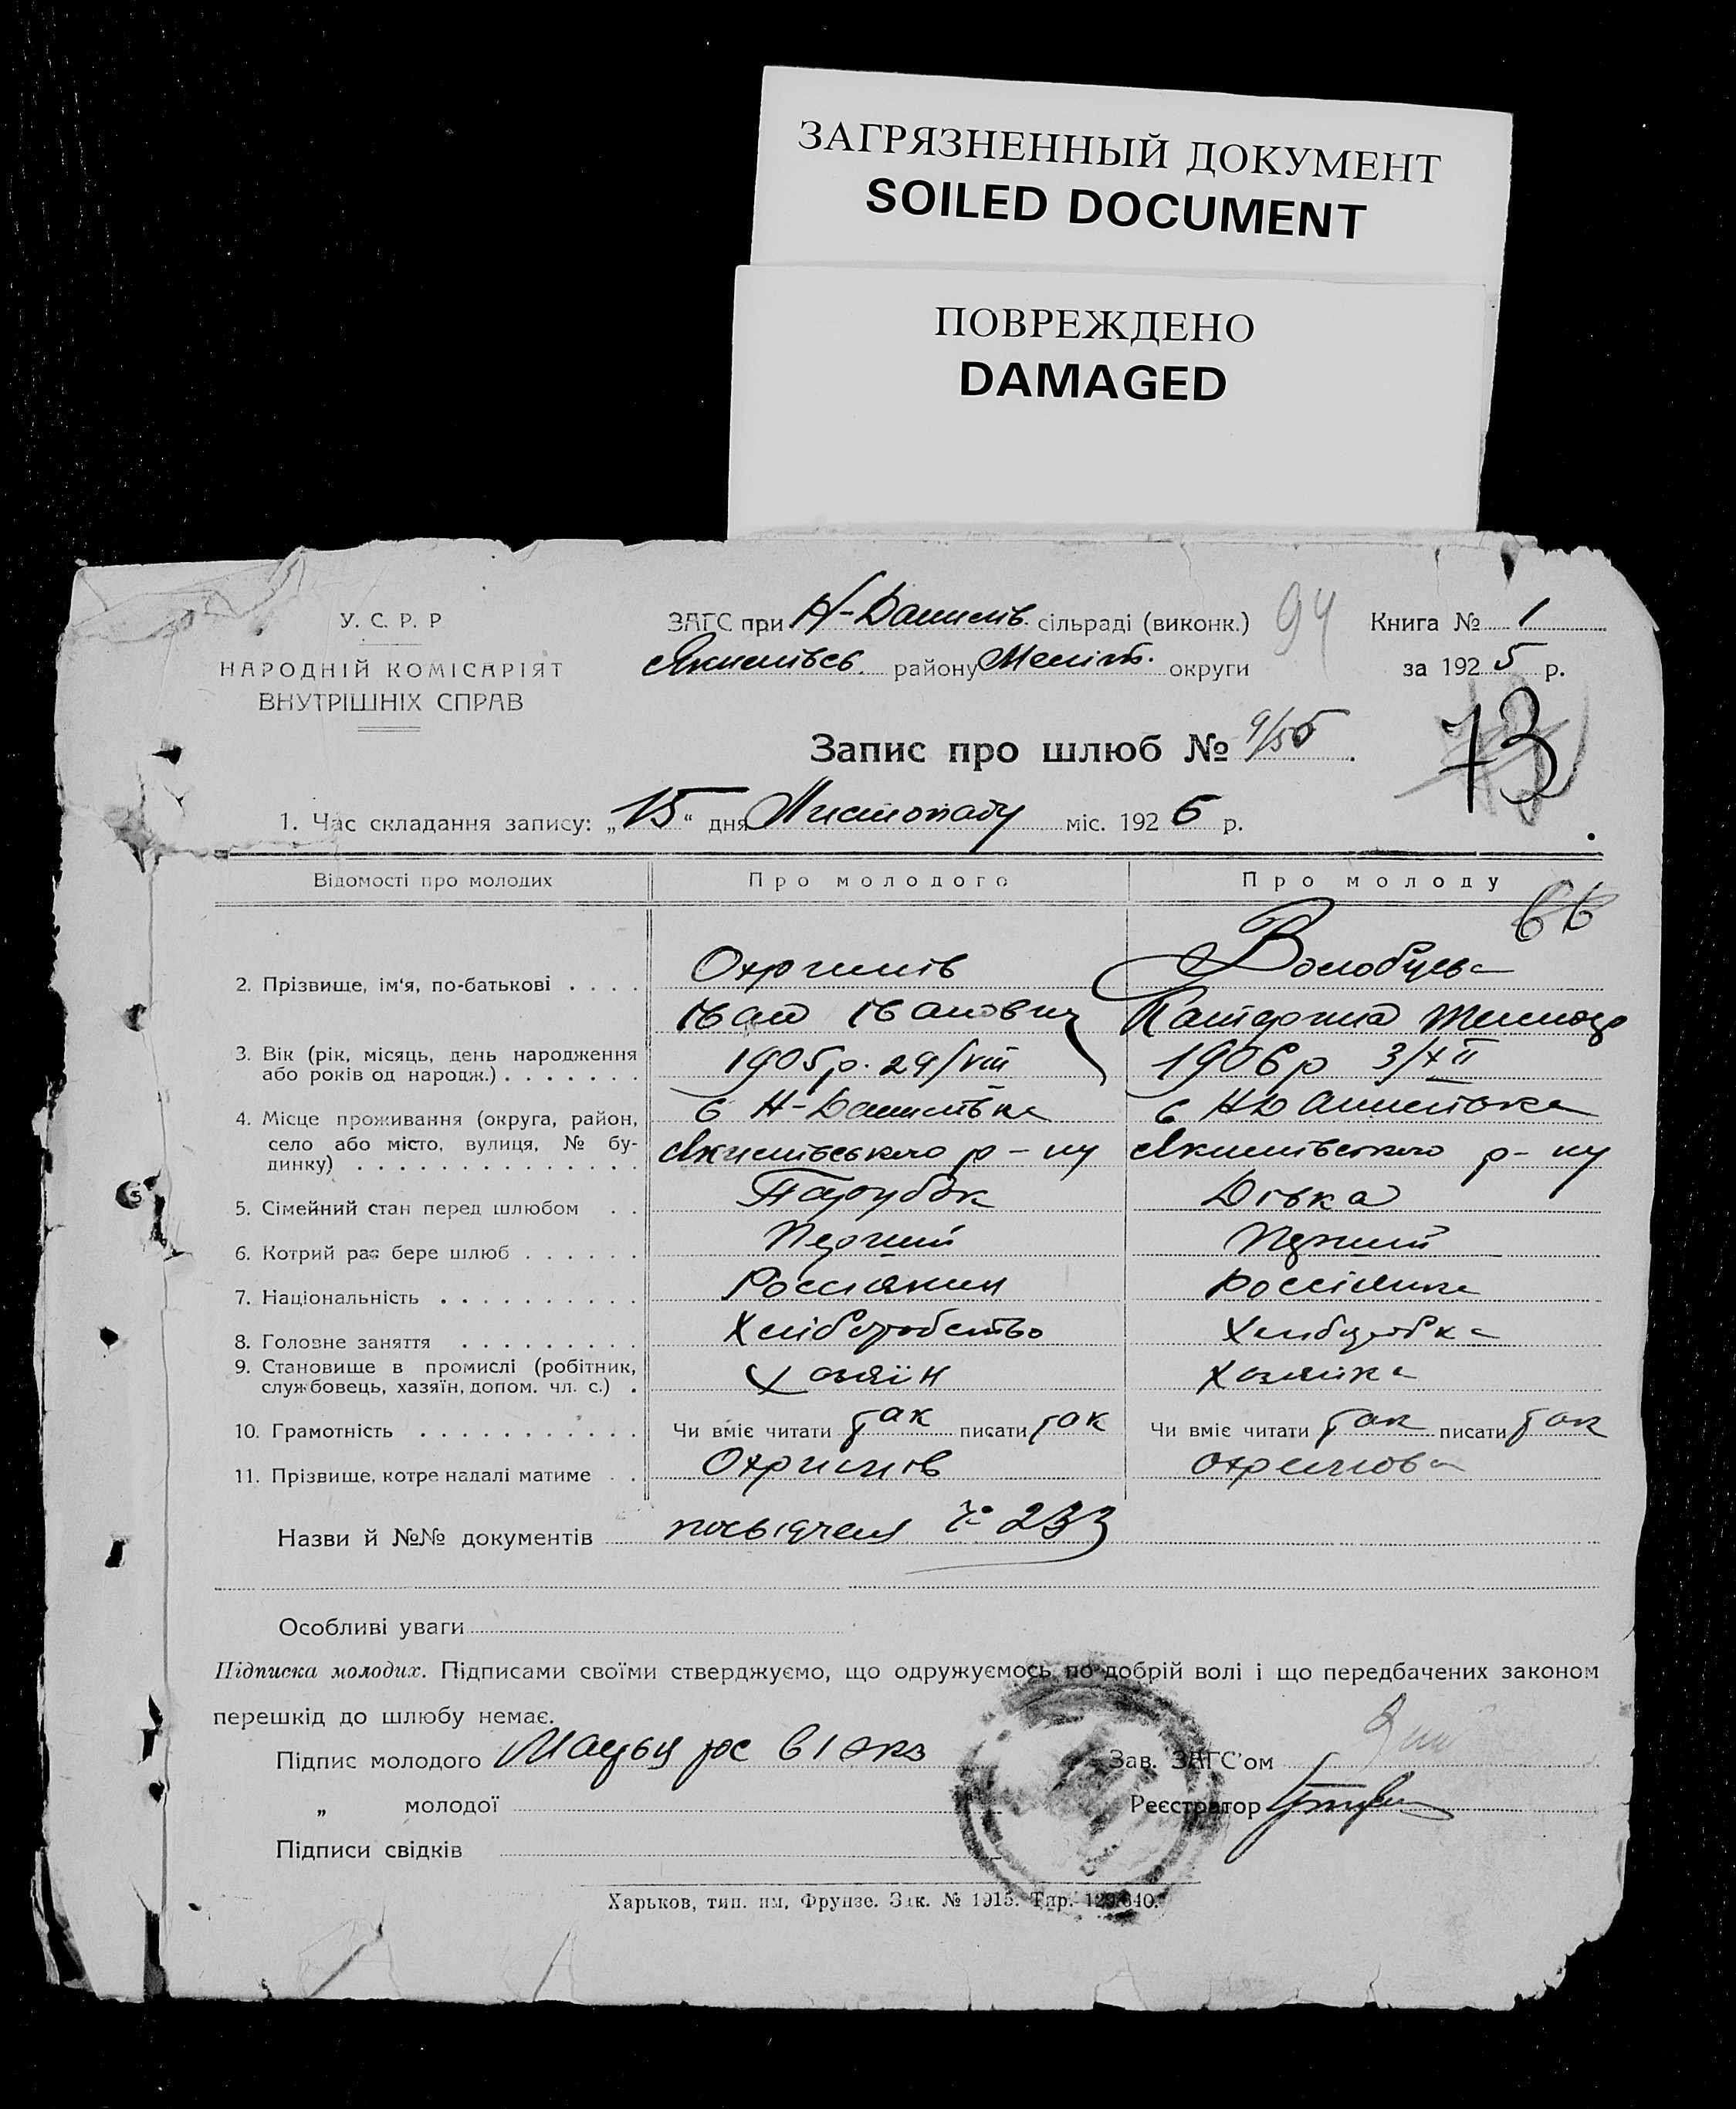 ЗАГРЯЗНЕННЫЙ ДОКУМЕНТ
SOILED DOCUMENT
ПОВРЕЖДЕНО
DAMAGED
У. С. Р. Р
НАРОДНІЙ КОМІСАРІЯТ
ВНУТРІШНІХ СПРАВ
ЗАГС при Н-Данилів. сільраді (виконк.)
94
Книга № 1
Якимівсь. району Меліт. округи
за 1925 р.
Запис про шлюб № 9/50
13
1. Час складання запису: „15“ дня Листопаду міс. 1925 р.
Відомості про молодих Про молодого Про молоду
66
2. Прізвище, ім'я, по-батькові . . . . Охримів Волобуєва
Іван Іванович Катерина
3. Вік (рік, місяць, день народження
або років од народж.) . . . . . . . 1905р. 29/VIII 1906р 3/XII
4. Місце проживання (округа, район, с Н-Данилівка с НДанилівка
село або місто, вулиця, № бу-
динку) . . . . . . . . . . . . . . Якимівського р-ну Якимівського р-ну
5. Сімейний стан перед шлюбом . . Парубок Дівка
6. Котрий раз бере шлюб . . . . . . Перший Перший
7. Національність . . . . . . . . . . Россіянин Россіянка
8. Головне заняття . . . . . . . . . Хліборобство Хліборобка
9. Становище в промислі (робітник,
службовець, хазяїн, допом. чл. с.) . Хазяїн Хазяйка
10. Грамотність . . . . . . . . . . . Чи вміє читати так писати так Чи вміє читати так писати так
11. Прізвище, котре надалі матиме . . Охримів Охримова
Назви й №№ документів посвідченя № 233
Особливі уваги
Підписка молодих. Підписами своїми стверджуємо, що одружуємось по добрій волі і що передбачених законом
перешкід до шлюбу немає.
Підпис молодого в І екз
Зав. ЗАГС'ом
„ молодої
Реєстратор
Підписи свідків
Харьков, тип. им. Фрунзе. Зак. № 1915. Тир. 129.640.